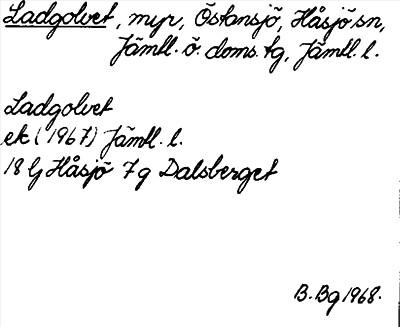 Ladgolvet, myr, Östansjö, Håsjö sn,
Jämtl. ö. doms. tg, Jämtl. l.
Ladgolvet
ek (1967) Jämtl. l.
18 G Håsjö 7 g Dalsberget
B. Bg 1968.